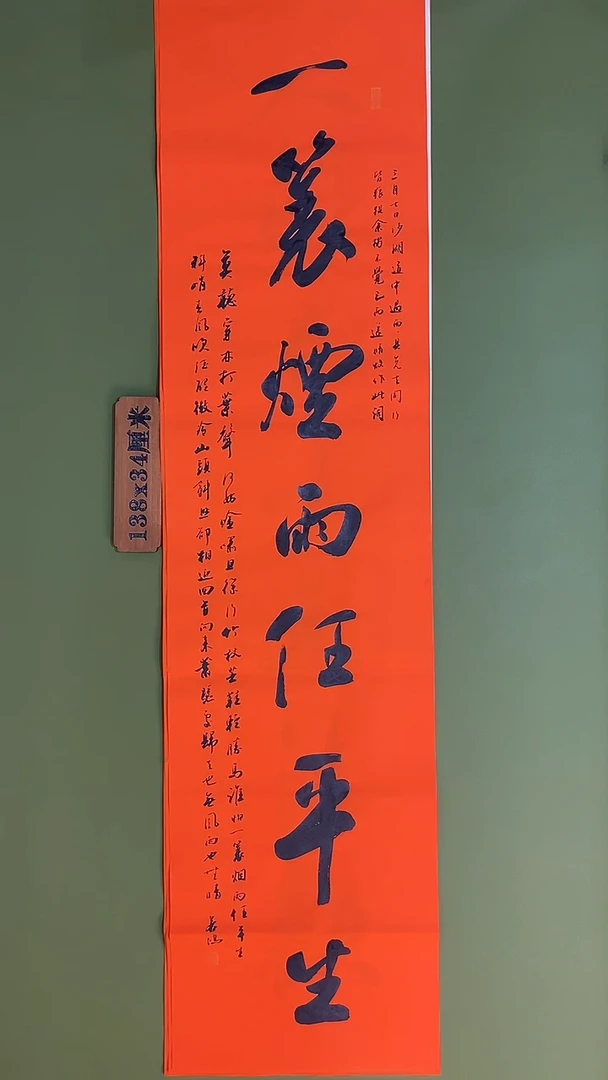 三月七日沙湖道中遇雨具先去同行
皆狼狽余獨不覺已而遂晴故作此闋
一蓑煙雨任平生
莫聽穿林打葉聲何妨吟嘯且徐行竹杖芒鞋輕勝馬誰怕一蓑烟雨任平生
料峭春風吹酒醒微冷山頭斜照卻相迎回首向來蕭瑟處歸去也無風雨也無晴
138x34厘米